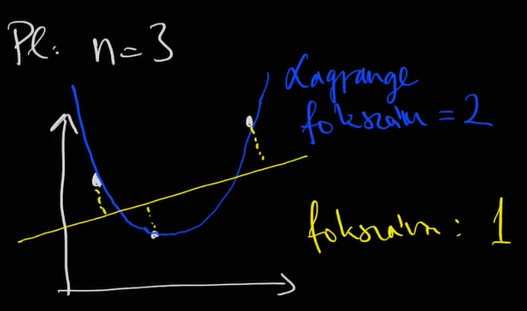 Pl: n=3
Lagrange
fokszám = 2
fokszám: 1